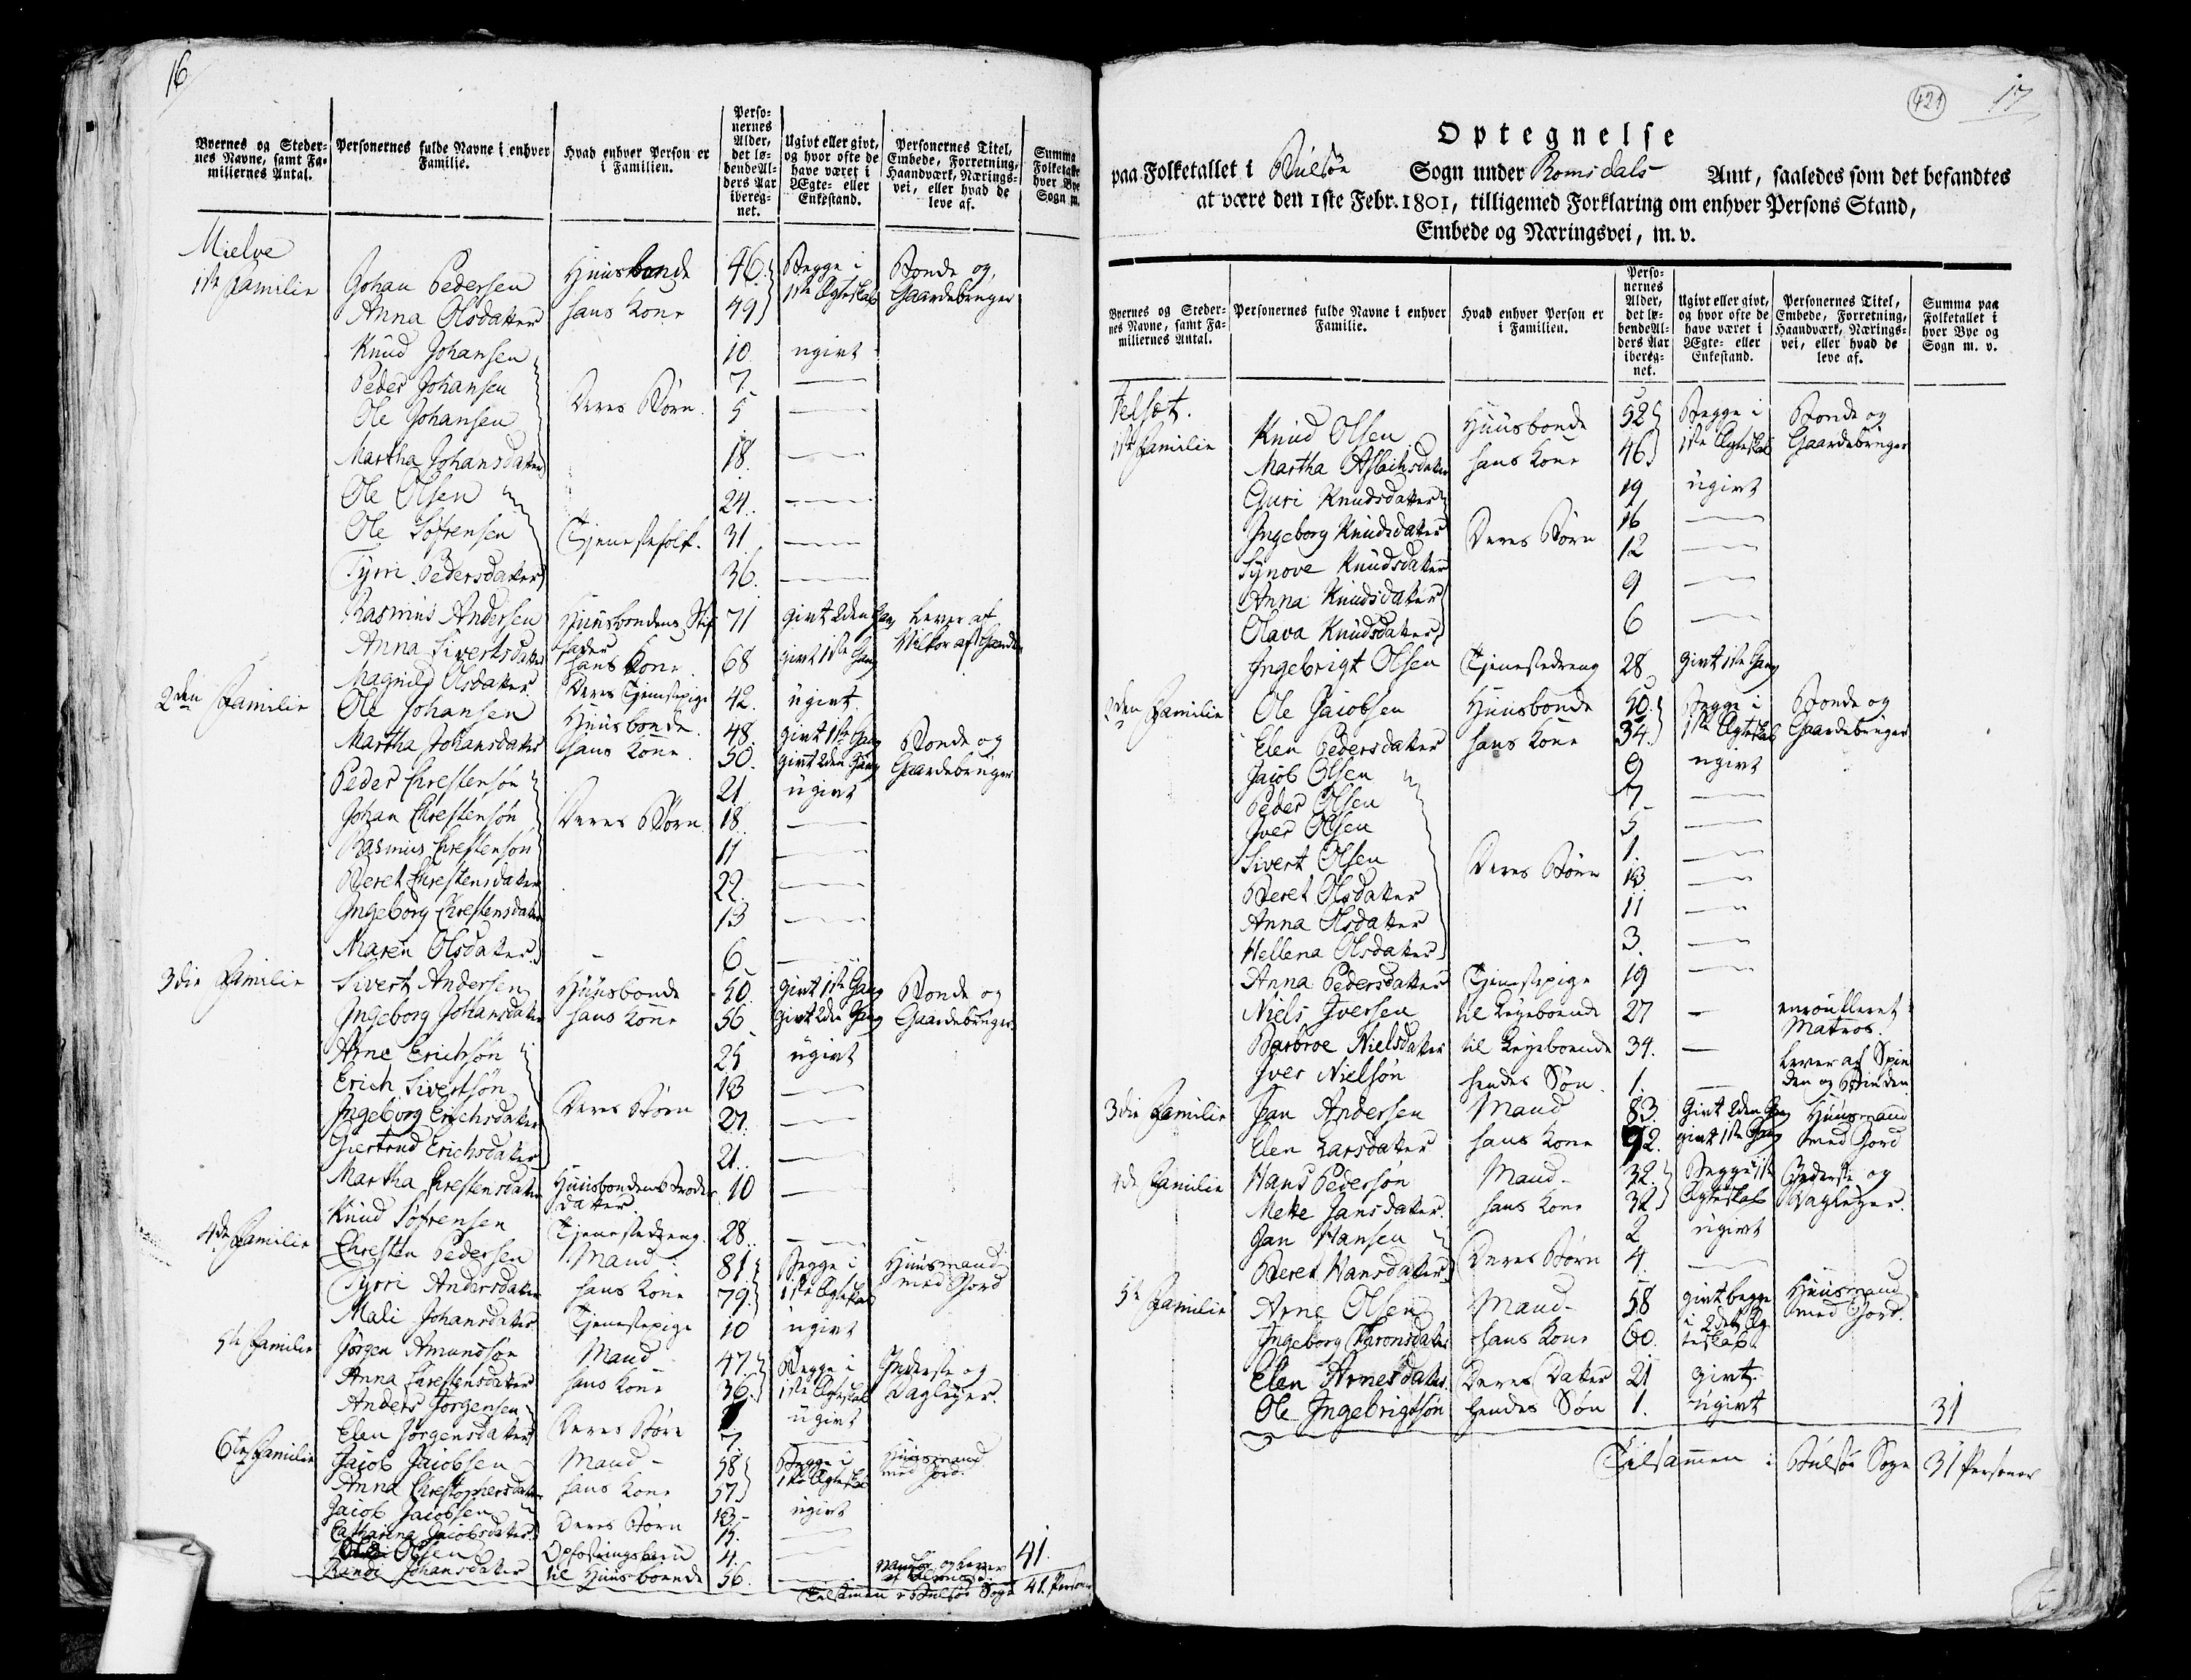 16
Byernes og Steder-
nes Navne, samt Fa-
miliernes Antal.
Personernes fulde Navne i enhver
Familie.
Hvad enhver Person er
i Familien.
Perso-
nernes
Alder,
det lø-
bende Al-
ders Aar
ibereg-
net.
Ugivt eller givt,
og hvor ofte de
have været i
Ægte- eller
Enkestand.
Personernes Titel,
Embede, Forretning,
Haandværk, Nærings-
vei, eller hvad de
leve af.
Summa
Folketalle
hver Bye
Sogn m.
Mielve
1ste Familie Johan Pedersen Huusbonde 46 Begge i Bonde og
Anna Olsdatter hans Kone 49 1ste Ægteskab Gaardebruger
Knud Johansen 10 ugivt
Peder Johansen 7
Ole Johansen Deres Børn 5
Martha Johansdatter 18
Ole Olsen 24
Ole Sofrensen Tjenestefolk 31
Tyrri Pedersdatter 36
Rasmus Andersen Huusbondens Stif 71 givt 2den Gang Lever af
fader Vilkor af Gaarden
Anna Sivertsdatter hans Kone 68 givt 1ste Gang
Magnild Olsdatter Deres Tjenestepige 42 ugivt
2den Familie Ole Johansen Huusbonde 48 givt 1ste Gang Bonde og
Martha Johansdatter hans Kone 50 givt 2den Gang Gaardebruger
Peder Chrestensøn 21 ugivt
Johan Chrestensøn Deres Børn 18
Rasmus Chrestensøn 11
Beret Chrestensdatter 22
Ingeborg Chrestensdatter 13
Maren Olsdatter 6
3die Familie Sivert Andersen Huusbonde 50 givt 1ste Gang Bonde og
Ingeborg Johansdatter hans Kone 56 givt 2den Gang Gaardebruger
Arne Erichsøn 25 ugivt
Erich Sivertsøn 13
Ingeborg Erichsdatter Deres Børn 27
Giertrud Erichsdatter 21
Martha Chrestensdatter Huusbondens Broder 10
datter
Knud Sofrensen Tjenestedreng 28
4de Familie Chresten Pedersen Mand 81 Begge i Huusmand
Tyrri Andersdatter hans Kone 79 1ste Ægteskab med Jord
Mali Johansdatter Tjenestepige 10 ugivt
5te Familie Jørgen Amundsøn Mand 47 Begge i Inderste og
Anna Chrestensdatter hans Kone 36 1ste Ægteskab Dagleyer
Anders Jørgensen ugivt
Elen Jørgensdatter Deres Børn 7
6te Familie Jacob Jacobsen Mand 58 Begge i Huusmand
Anna Chrestophersdatter hans Kone 57 1ste Ægteskab med Jord
Jacob Jacobsen 18 ugivt
Catharina Jacobsdatter Deres Børn 15
Olsen Opfostringsbarn 4
Randi Johansdatter til Huus boende 56 vanfør og lever 41
af Almisse
Tilsammen i Bulsøe Sogn 41 Personer
421 17
Optegnelse
paa Folketallet i Bulsøe Sogn under Romsdals Amt, saaledes som det befandtes
at være den 1ste Febr. 1801, tilligemed Forklaring om enhver Persons Stand,
Embede og Næringsvei, m. v.
Byernes og Steder-
nes Navne, samt Fa-
miliernes Antal.
Personernes fulde Navne i enhver
Familie.
Hvad enhver Person er
i Familien.
Perso-
nernes
Alder,
det lø-
bende Al-
ders Aar
ibereg-
net.
Ugivt eller givt,
og hvor ofte de
have været i
Ægte- eller
Enkestand.
Personernes Titel,
Embede, Forretning,
Haandværk, Nærings-
vei, eller hvad de
leve af.
Summa paa
Folketallet i
hver Bye og
Sogn m. v.
Felset.
1ste Familie Knud Olsen Huusbonde 52 Begge i Bonde og
Martha Aslachsdatter hans Kone 46 1ste Ægteskab Gaardebruger
Guri Knudsdatter 19 ugivt
Ingeborg Knudsdatter Deres Børn 16
Synove Knudsdatter 12
Anna Knudsdatter 9
Olava Knudsdatter 6
Ingebrigt Olsen Tjenestedreng 28 givt 1ste Gang
2den Familie Ole Jacobsen Huusbonde 50 Begge i Bonde og
Elen Pedersdatter hans Kone 34 1ste Ægteskab Gaardebruger
Jacob Olsen 9 ugivt
Peder Olsen 7
Iver Olsen 5
Sivert Olsen Deres Børn 1
Beret Olsdatter 13
Anna Olsdatter 11
Hellena Olsdatter 3
Anna Pedersdatter Tjenestepige 19
Niels Iversen til Leyeboende 27 enroulleret
Matros.
Barbroe Nielsdatter til Leyeboende 34 Lever af Spin
Iver Nielsøn hendes Søn 1 den og Binden
3die Familie Jan Andersen Mand 83 Givt 2den Gang Huusmand
Elen Larsdatter hans Kone 92 givt 1ste Gang med Jord
4de Familie Hans Pedersøn Mand 32 Begge i 1ste Inderste og
Mette Jansdatter hans Kone 32 Ægteskab Dagleyer.
Jan Hansen 2 ugivt
Beret Hansdatter Deres Børn 4
5te Familie Arne Olsen Mand 58 givt begge Huusmand
Ingeborg Aaronsdatter hans Kone 60 i 2det Æg med Jord.
teskab
Elen Arnesdatter Deres Datter 21 givt
Ole Ingebrigtsøn hendes Søn 1 ugivt 31
Tilsammen i Bulsøe Sogn 31 Personer